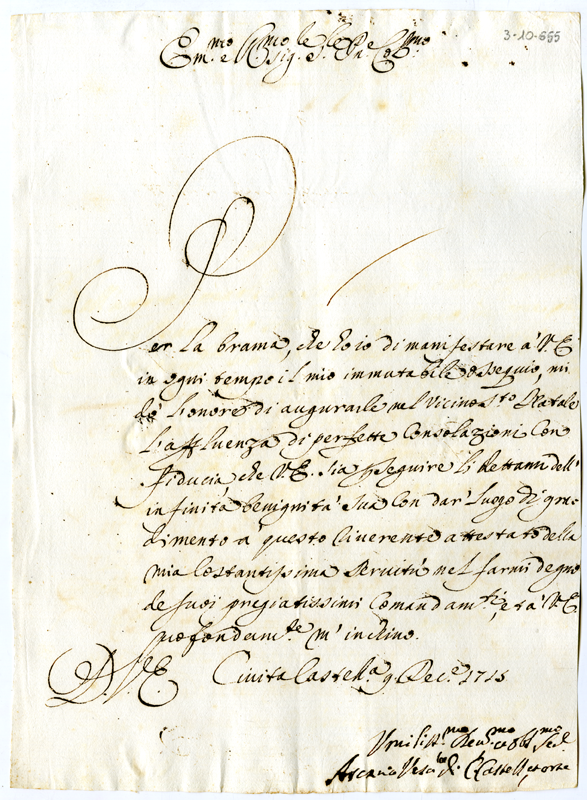 3-10-655
Em.mo e R.mo Sig.re Sig.re P.ne Col.mo
Per la brama, che ho io di manifestare à V.E.
in ogni tempo il mio immutabile ossequio, mi
dò l'onore di augurarle nel vicino S.to Natale
l'affluenza di perfette consolazioni con
fiducia che V.E. sia p seguire li dettami dell'
infinita benignità sua con dar' luogo di gra=
dimento à questo riverente attestato della
mia costantissima servitù nel farmi degno
de suoi pregiatissimi comandam.ti, e à V.E.
profondam.te m'inchino.
D. V.E. Civita Castell.a 9 Dec.e 1715
Umiliss.mo Dev.mo et obl.mo Ser.
Vesc.o di C. Castell. et Orte